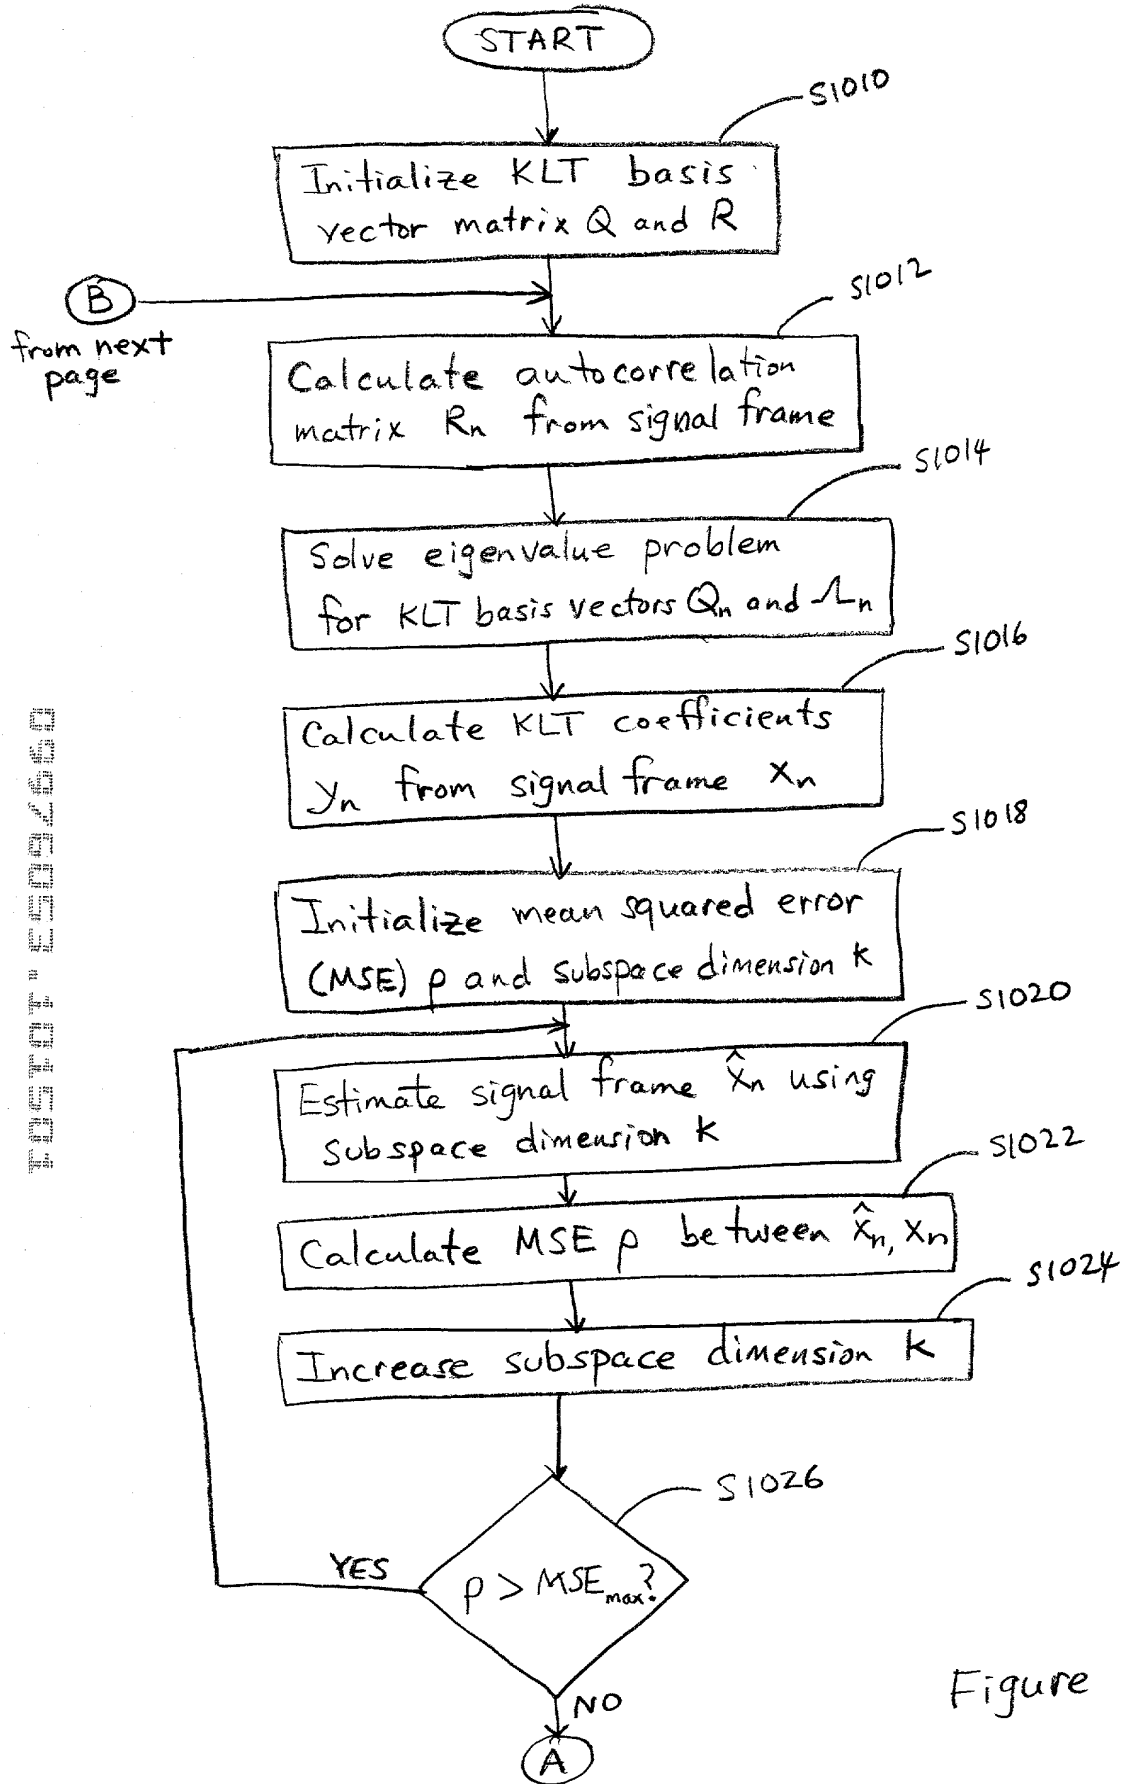 START
S1010
Initialize KLT basis
vector matrix Q and R
B
from next
page
S1012
Calculate autocorrelation
matrix Rn from signal frame
S1014
Solve eigenvalue problem
for KLT basis vectors Qn and Λn
S1016
Calculate KLT coefficients
yn from signal frame xn
S1018
Initialize mean squared error
(MSE) ρ and subspace dimension k
S1020
Estimate signal frame x̂n using
subspace dimension k
S1022
Calculate MSE ρ between x̂n, xn
S1024
Increase subspace dimension k
S1026
ρ > MSEmax?
YES
NO
A
Figure
09976053.101501